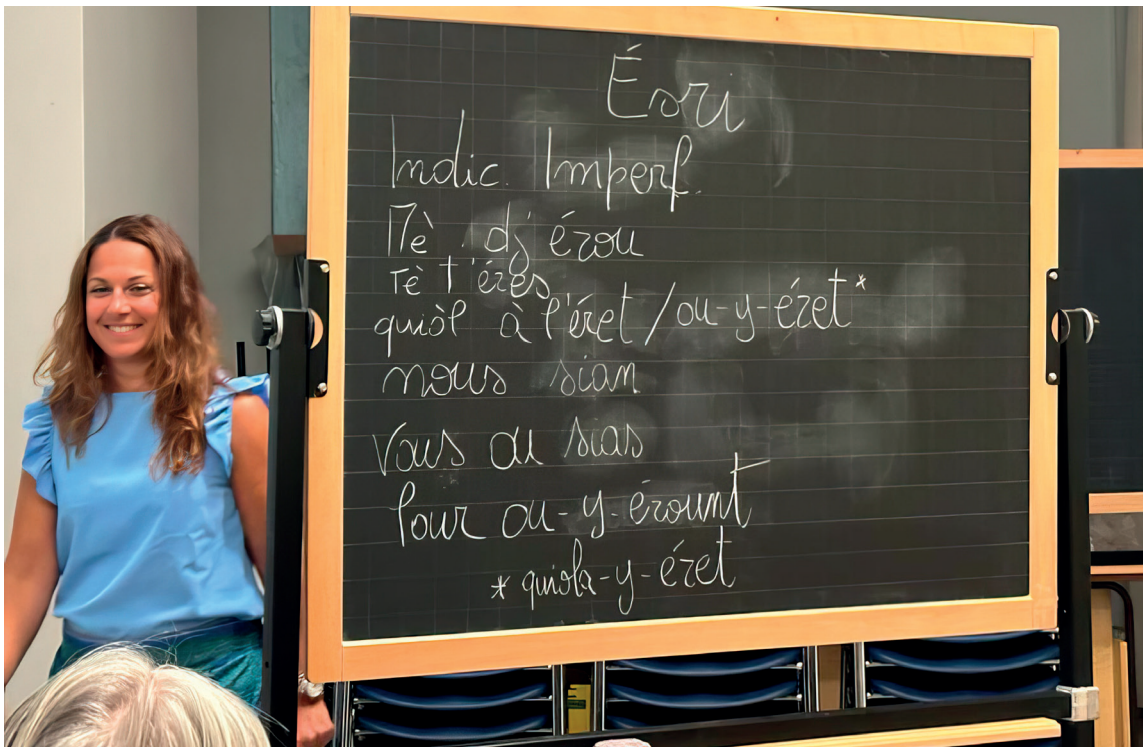 Ésri
Indic. Imperf.
Mè dj'érou
Tè t'éres
quiòl à l'éret / ou-y-éret*
nous sian
vous ou sias
lour ou-y-érount
* quiola-y-éret